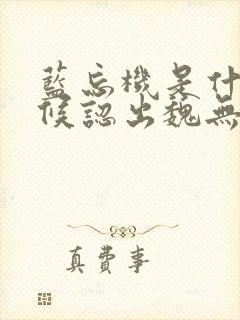 藍忘機是什
候認出魏無
真費事